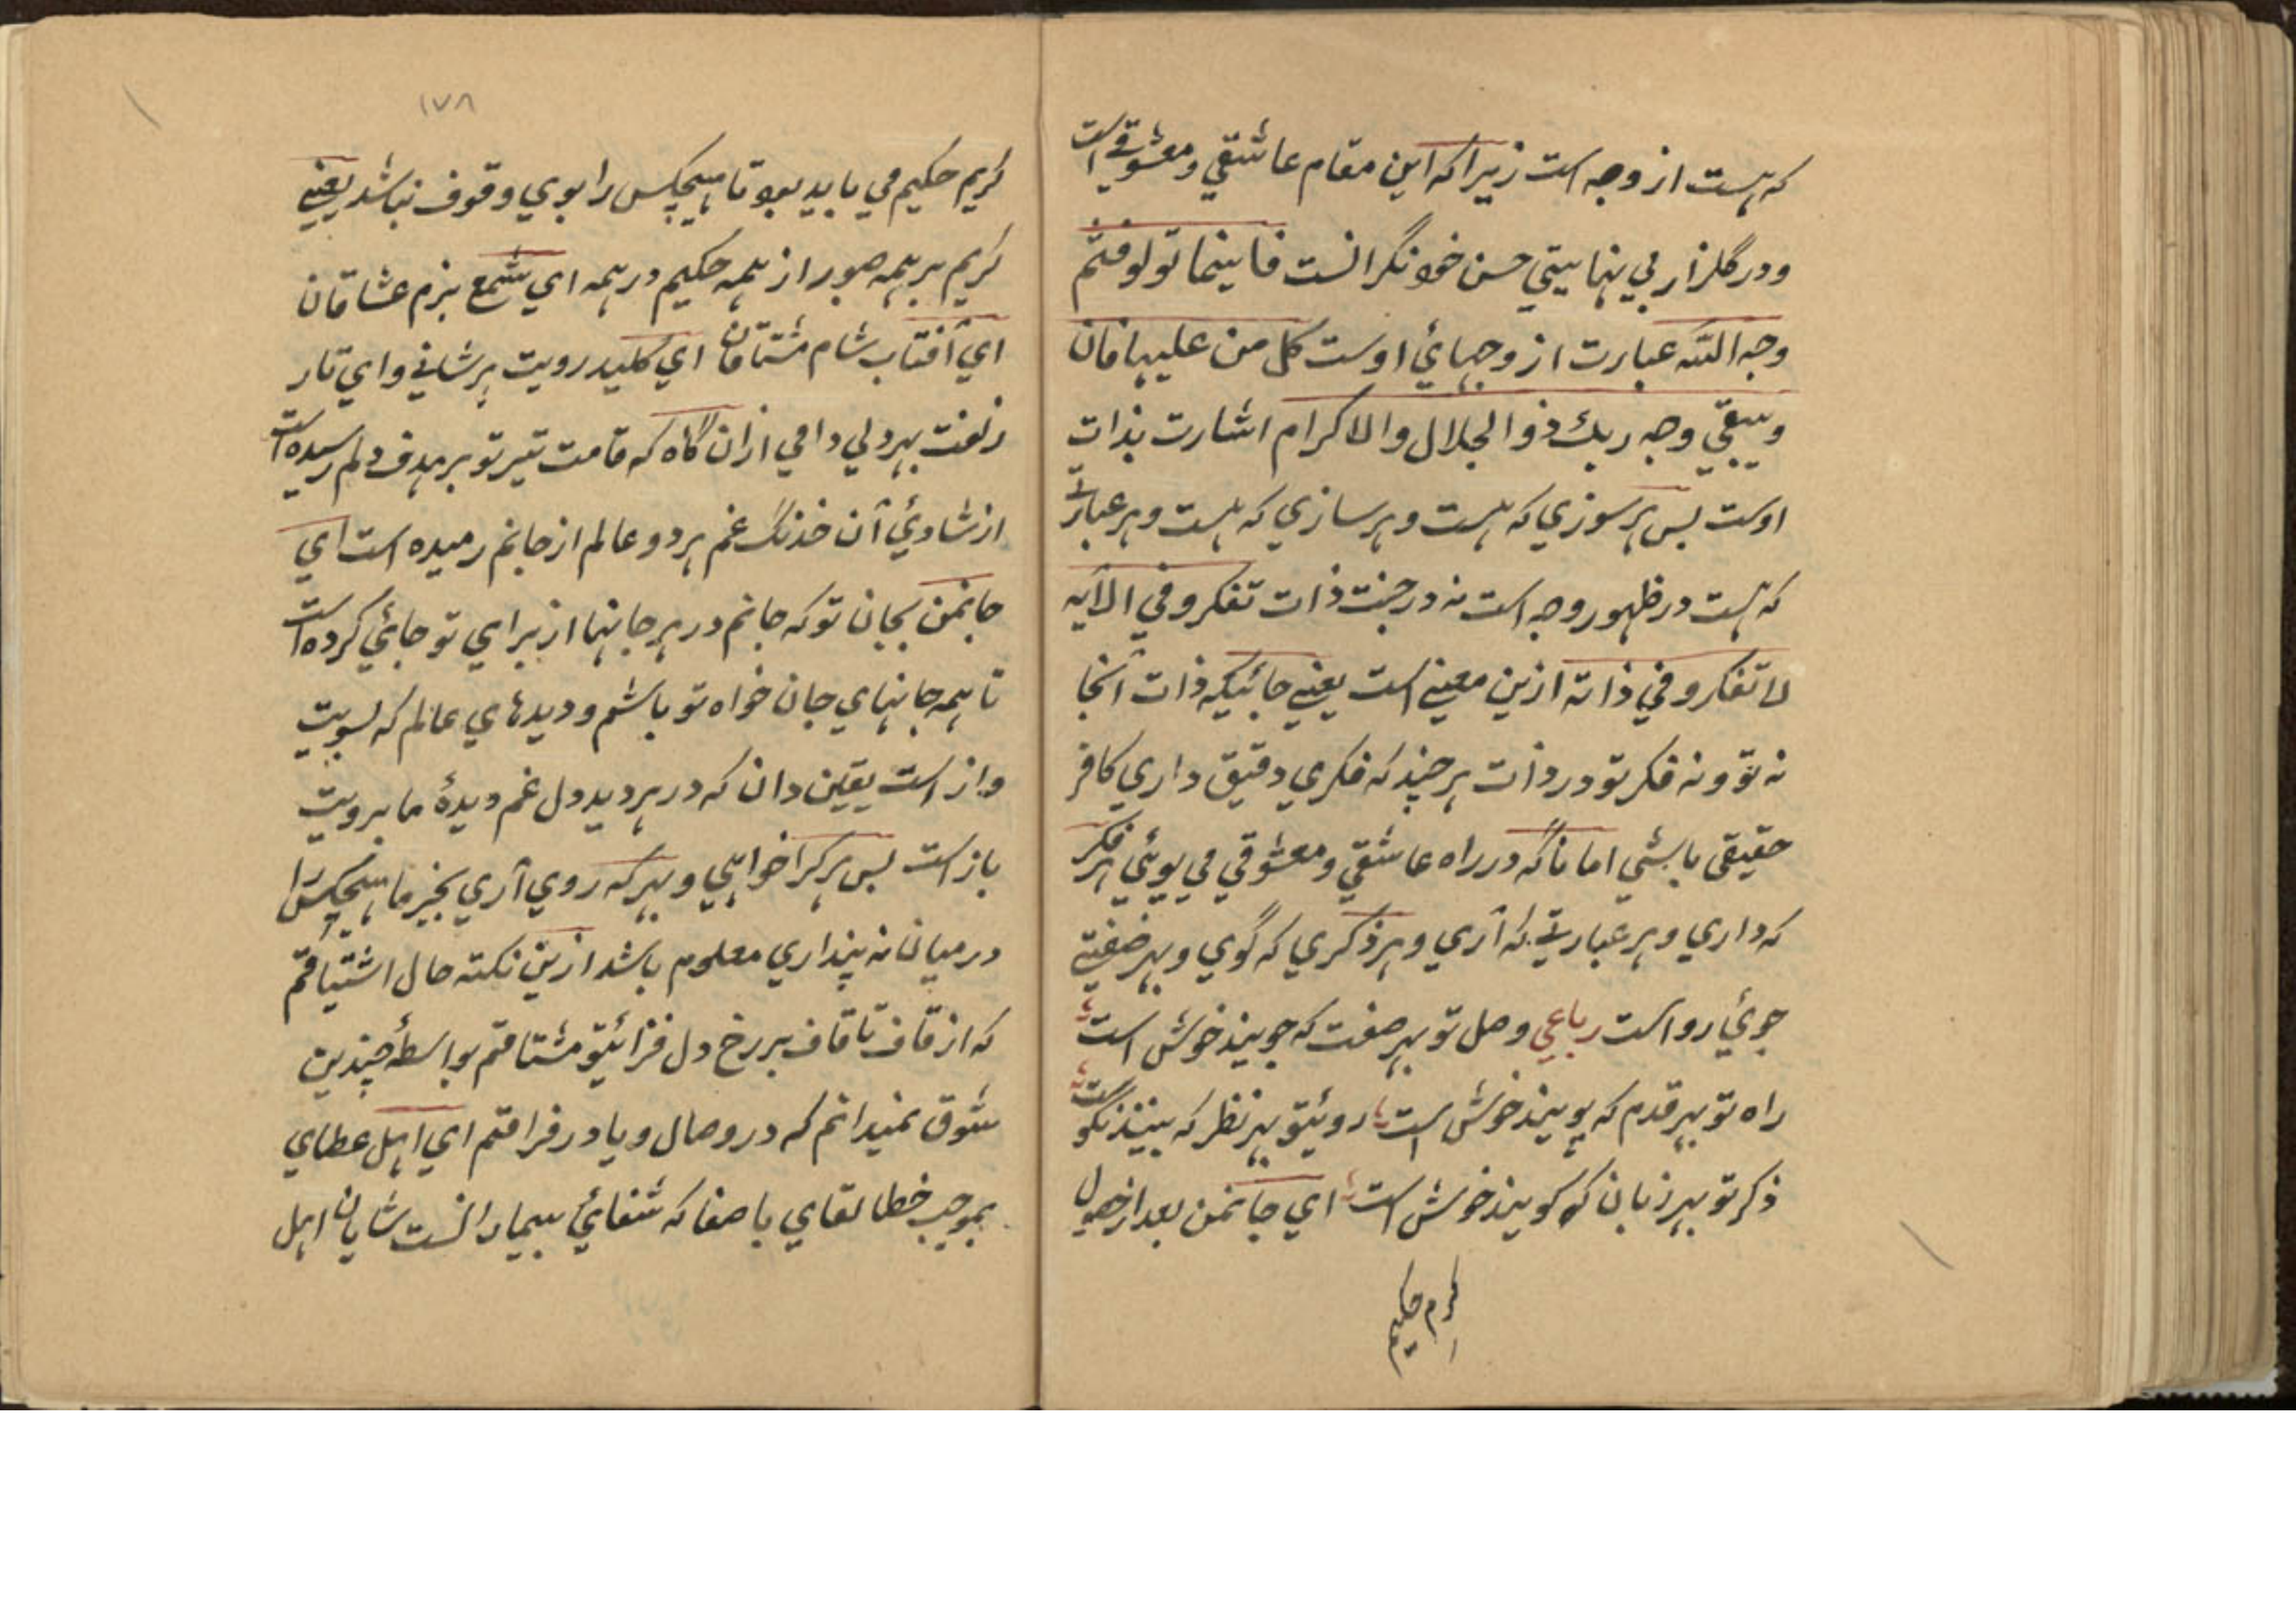 که هست از وجه است زیراکه این مقام عاشقي ومعشوقي است
ودر گلزار بي نهایتي حسن خود نگرانست فاینما تولو فثم
وجه الله عبارت از وجهائي اوست کل من علیها فان
ویبقي وجه ربك ذوالجلال والاکرام اشارت بذات
اوست بس هر سوزي که هست وهر سازي که هست وهر عبارتي
که هست در ظهور وجه است نه در جنت ذات تفکرو في الآیه
لا تفکرو في ذاته ازین معنی است یعنے جائیکه ذات آنجا
نه تو ونه فکر تو در ذات هر چند که فکري دقیق داري کافر
حقیقی باشي اما تاکه در راه عاشقي ومعشوقي مي پوئي هر فکر
که داري وهر عبارتي که آري وهر ذکري که گوي وبهر صفتے
جوئي روا است رباعي وصل تو بهر صفت که جویند خوش است
راه تو بهر قدم که پویند خوش است رویتو بهر نظر که بینند نکو است
ذکر تو بهر زبان که کویند خوش است اي جانمن بعد از حصول
کریم حکیم
۱۷۸
کریم حکیم مي باید بود تا هیچکس را بوي وقوف نباشد یعنے
کریم بر همه صبور از همه حکیم در همه اي شمع بزم عشاقان
اي آفتاب شام مشتاقان اي کلید رویت هر شانے واي تار
زلفت بهر دلي دامي ازان گاه که قامت تیر تو بر هدف دلم رسیده است
از شادئي آن خدنگ غم هر دو عالم از جانم رمیده است اي
جانمن بجان تو که جانم در هر جانها از براي تو جائي کرده است
تا همه جانهاي جان خواه تو باشم ودیدهاي عالم که بسویت
واز است یقین دان که در هر دید دل غم دیدهٔ ما برویت
باز است بس هرکرا خواهي وبهرکه روي آري بخیر ما هیچکس را
در میان نه پنداري معلوم باشد ازین نکته حال اشتیاقم
که از قاف تا قاف بر رخ دل فزائیتو مشتاقم بواسطهٔ چندین
شوق نمیدانم که در وصال ویا در فراقم اي اهل عطاي
بموجب خطا لقاي با صفا که شفائي بیمارانست شایان اهل